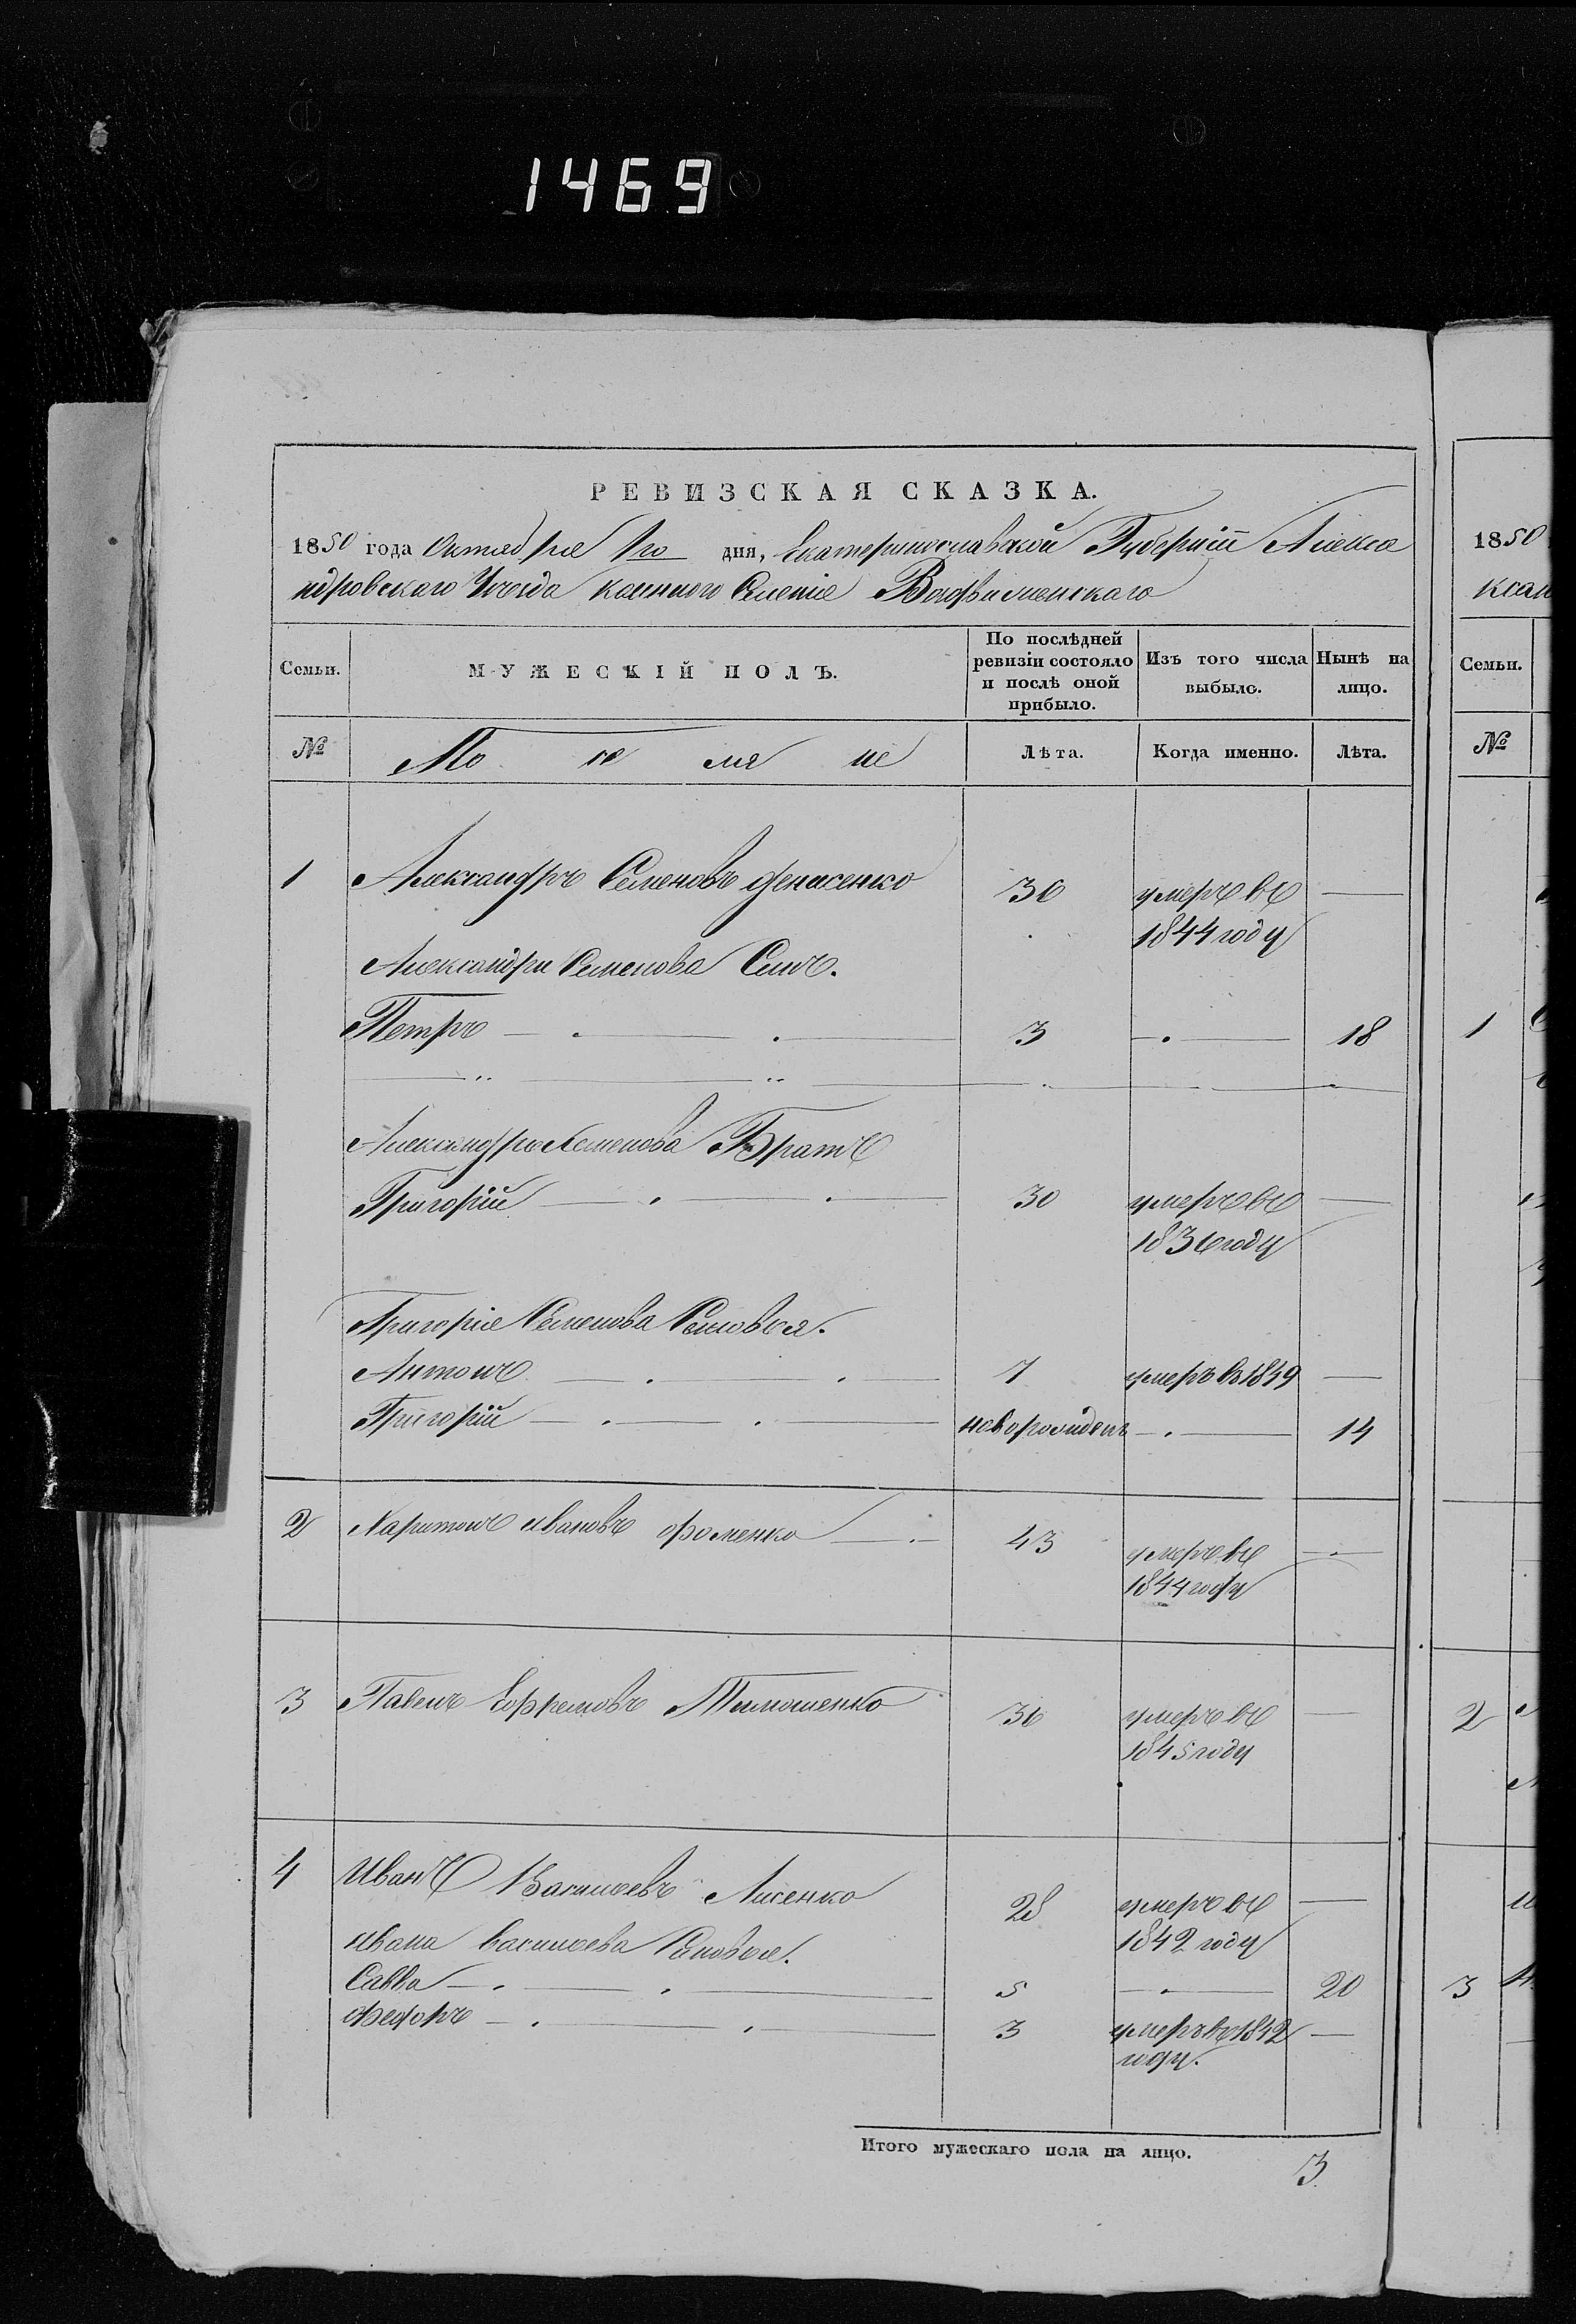 1469
РЕВИЗСКАЯ СКАЗКА.
1850 года Октября 1го дня, Екатеринославской Губернии Алекса
ндровскаго Уезда казенного Селения
Семьи. МУЖЕСКІЙ ПОЛЪ. По послѣдней ревизіи состояло и послѣ оной прибыло. Изъ того числа выбыло. Нынѣ на лицо.
№ Лѣта. Когда именно. Лѣта.
1 Александръ Семеновъ Денисенко 36 умеръ въ —
1844 году
Александра Семенова Сынъ.
Петръ — 3 — 18
Александра Семенова Братъ
Григорій — 30 умеръ въ —
1836 году
Григорія Семенова Сыновья.
Антонъ — 7 умеръ въ 1849 —
Григорій — новорожденъ — 14
2 Харитонъ Ивановъ Фоменко — 43 умеръ въ —
1844 году
3 Павелъ Ефремовъ Тимошенко 36 умеръ въ —
1845 году
4 Иванъ Васильевъ Лисенко 28 умеръ въ —
1842 году
Ивана Васильева Сыновья.
Савва — 5 — 20
Федоръ — 3 умеръ въ 1842 —
году.
Итого мужескаго пола на лицо. 3
1850
ксан
Семьи.
№
1
2
3